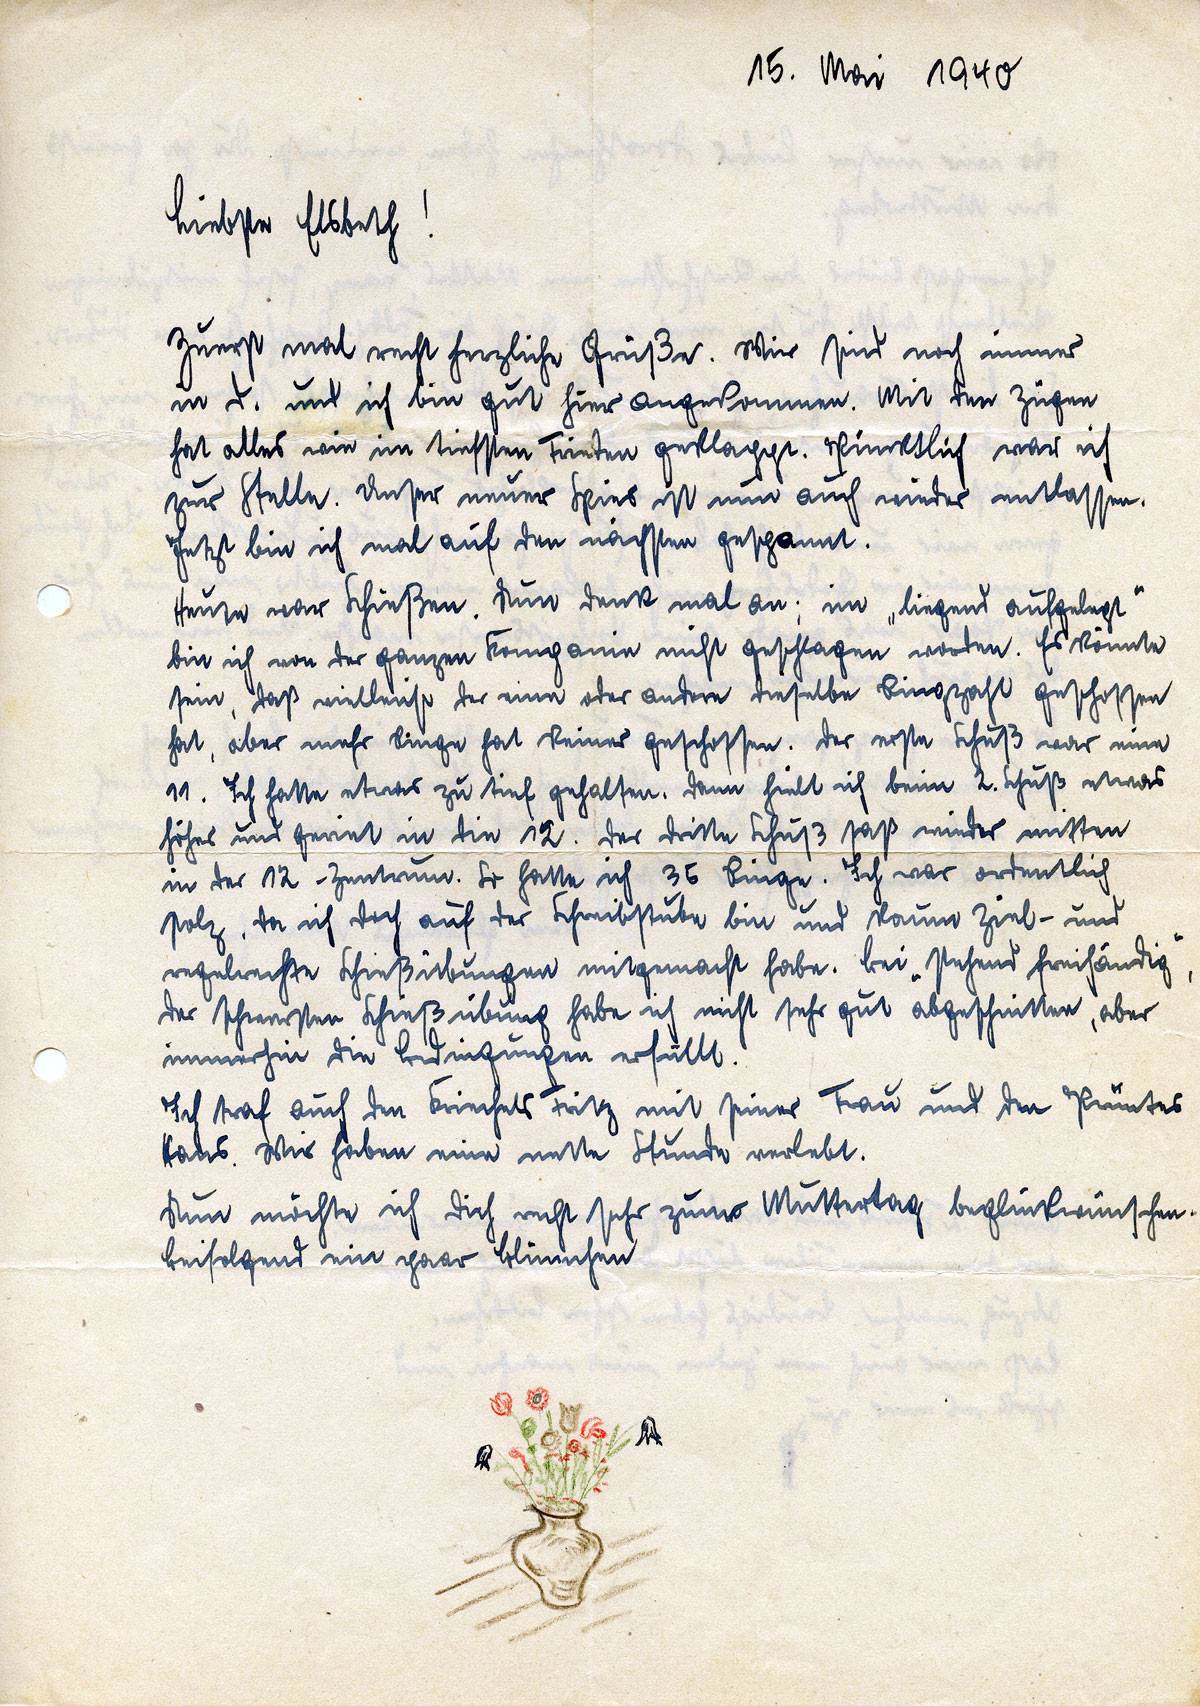 15. Mai 1940
Liebste Elsbeth!
Zuerst mal recht herzliche Grüße. Wir sind noch immer
in D. und ich bin gut hier angekommen. Mit den Zügen
hat alles wie im tiefsten Frieden geklappt. Pünktlich war ich
zur Stelle. Unser neuer Spies ist nun auch wieder entlassen.
Jetzt bin ich mal auf den nächsten gespannt.
Heute war Schießen. Nun denk mal an; im „liegend aufgelegt“
bin ich von der ganzen Kompanie nicht geschlagen worden. Es könnte
sein, daß vielleicht der eine oder andere dieselbe Ringzahl geschossen
hat, aber mehr Ringe hat keiner geschossen. Der erste Schuß war eine
11. Ich hatte etwas zu tief gehalten. Dann hielt ich beim 2. Schuß etwas
höher und geriet in die 12. Der dritte Schuß saß wieder mitten
in der 12-Zentrum. So hatte ich 35 Ringe. Ich war ordentlich
stolz, da ich doch auf der Schreibstube bin und kaum Ziel- und
regelrechte Schießübungen mitgemacht habe. Bei „stehend freihändig“,
der schwersten Schießübung habe ich nicht sehr gut abgeschnitten, aber
immerhin die Bedingungen erfüllt.
Ich traf auch den Kriechels Fritz mit seiner Frau und den Prüntes
Hans. Wir haben eine nette Stunde verlebt.
Nun möchte ich Dich recht sehr zum Muttertag beglückwünschen.
Beifolgend ein paar Blümchen